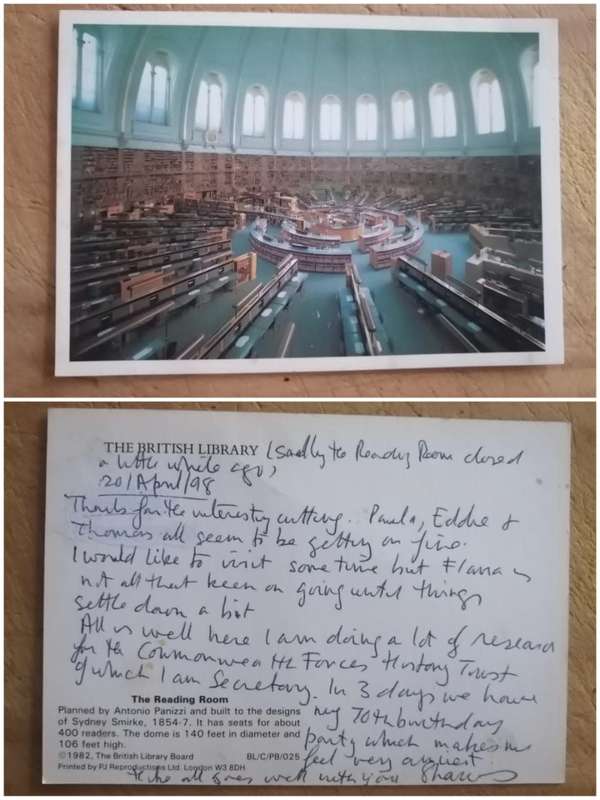 THE BRITISH LIBRARY (Sadly the Reading Room closed
a little while ago)
20/April/98
Thanks for the interesting cutting. Paula, Eddie &
Thomas all seem to be getting on fine.
I would like to visit some time but is
not all that keen on going until things
settle down a bit
All is well here I am doing a lot of research
for the Commonwealth Forces History Trust
of which I am Secretary. In 3 days we have
my 70th birthday
party which makes me
feel very
The Reading Room
Planned by Antonio Panizzi and built to the designs
of Sydney Smirke, 1854-7. It has seats for about
400 readers. The dome is 140 feet in diameter and
106 feet high.
©1982, The British Library Board BL/C/PB/025
Printed by PJ Reproductions Ltd. London W3 8DH
Hope all goes well with you